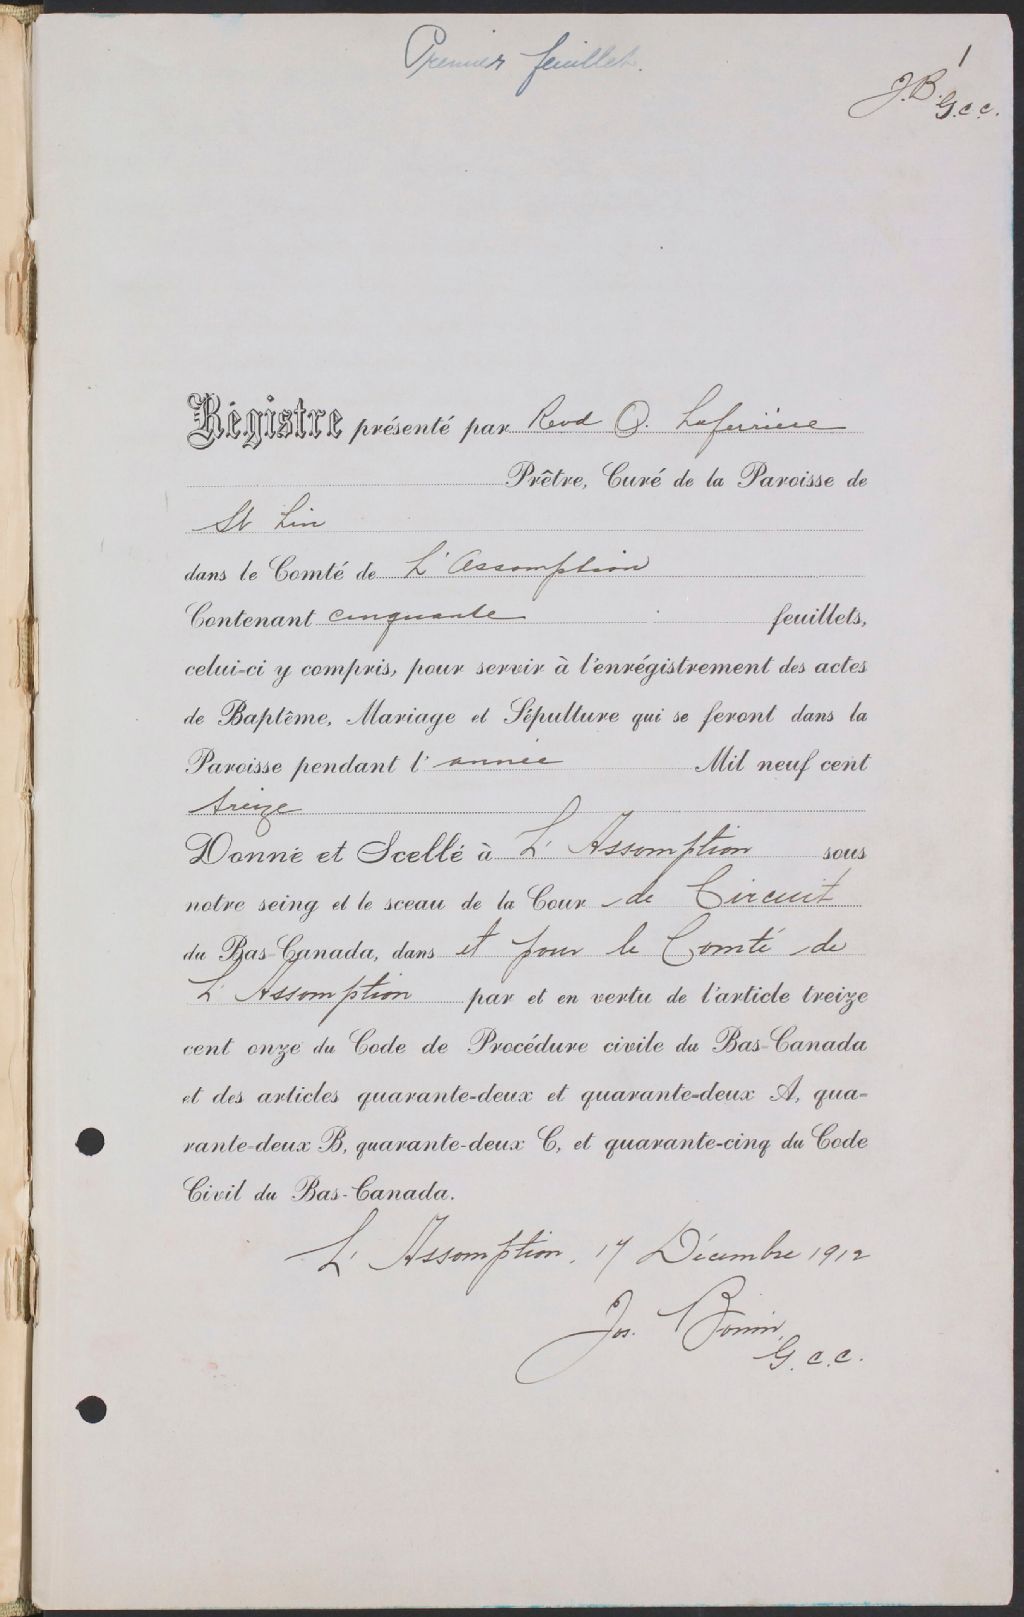 Premier feuillet.
1
J.B. G.c.c.
Régistre présenté par Revd O. Laferrière
Prêtre, Curé de la Paroisse de
St Lin
dans le Comté de L'Assomption
Contenant cinquante feuillets,
celui-ci y compris, pour servir à l'enrégistrement des actes
de Baptême, Mariage et Sépulture qui se feront dans la
Paroisse pendant l'année Mil neuf cent
treize
Donné et Scellé à L'Assomption sous
notre seing et le sceau de la Cour de Circuit
du Bas-Canada, dans et pour le Comté de
L'Assomption par et en vertu de l'article treize
cent onze du Code de Procédure civile du Bas-Canada
et des articles quarante-deux et quarante-deux A, qua-
rante-deux B, quarante-deux C, et quarante-cinq du Code
Civil du Bas-Canada.
L'Assomption, 17 Décembre 1912
Jos. Bonin,
G.c.c.